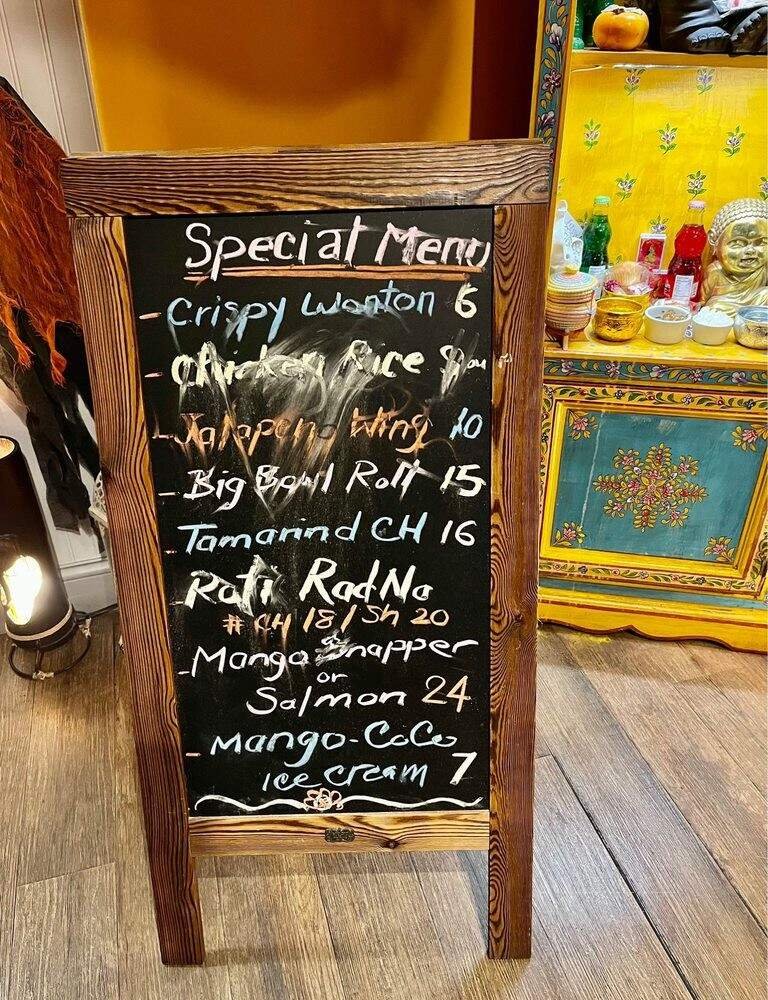 Special Menu
- Crispy Wonton 6
- Chicken Rice
- Jalapeno Wing 10
- Big Bowl Roti 15
- Tamarind CH 16
- Roti Rad Na
# CH 18 / Sh 20
- Mango Snapper
or
Salmon 24
- Mango-CoCo
ice cream 7